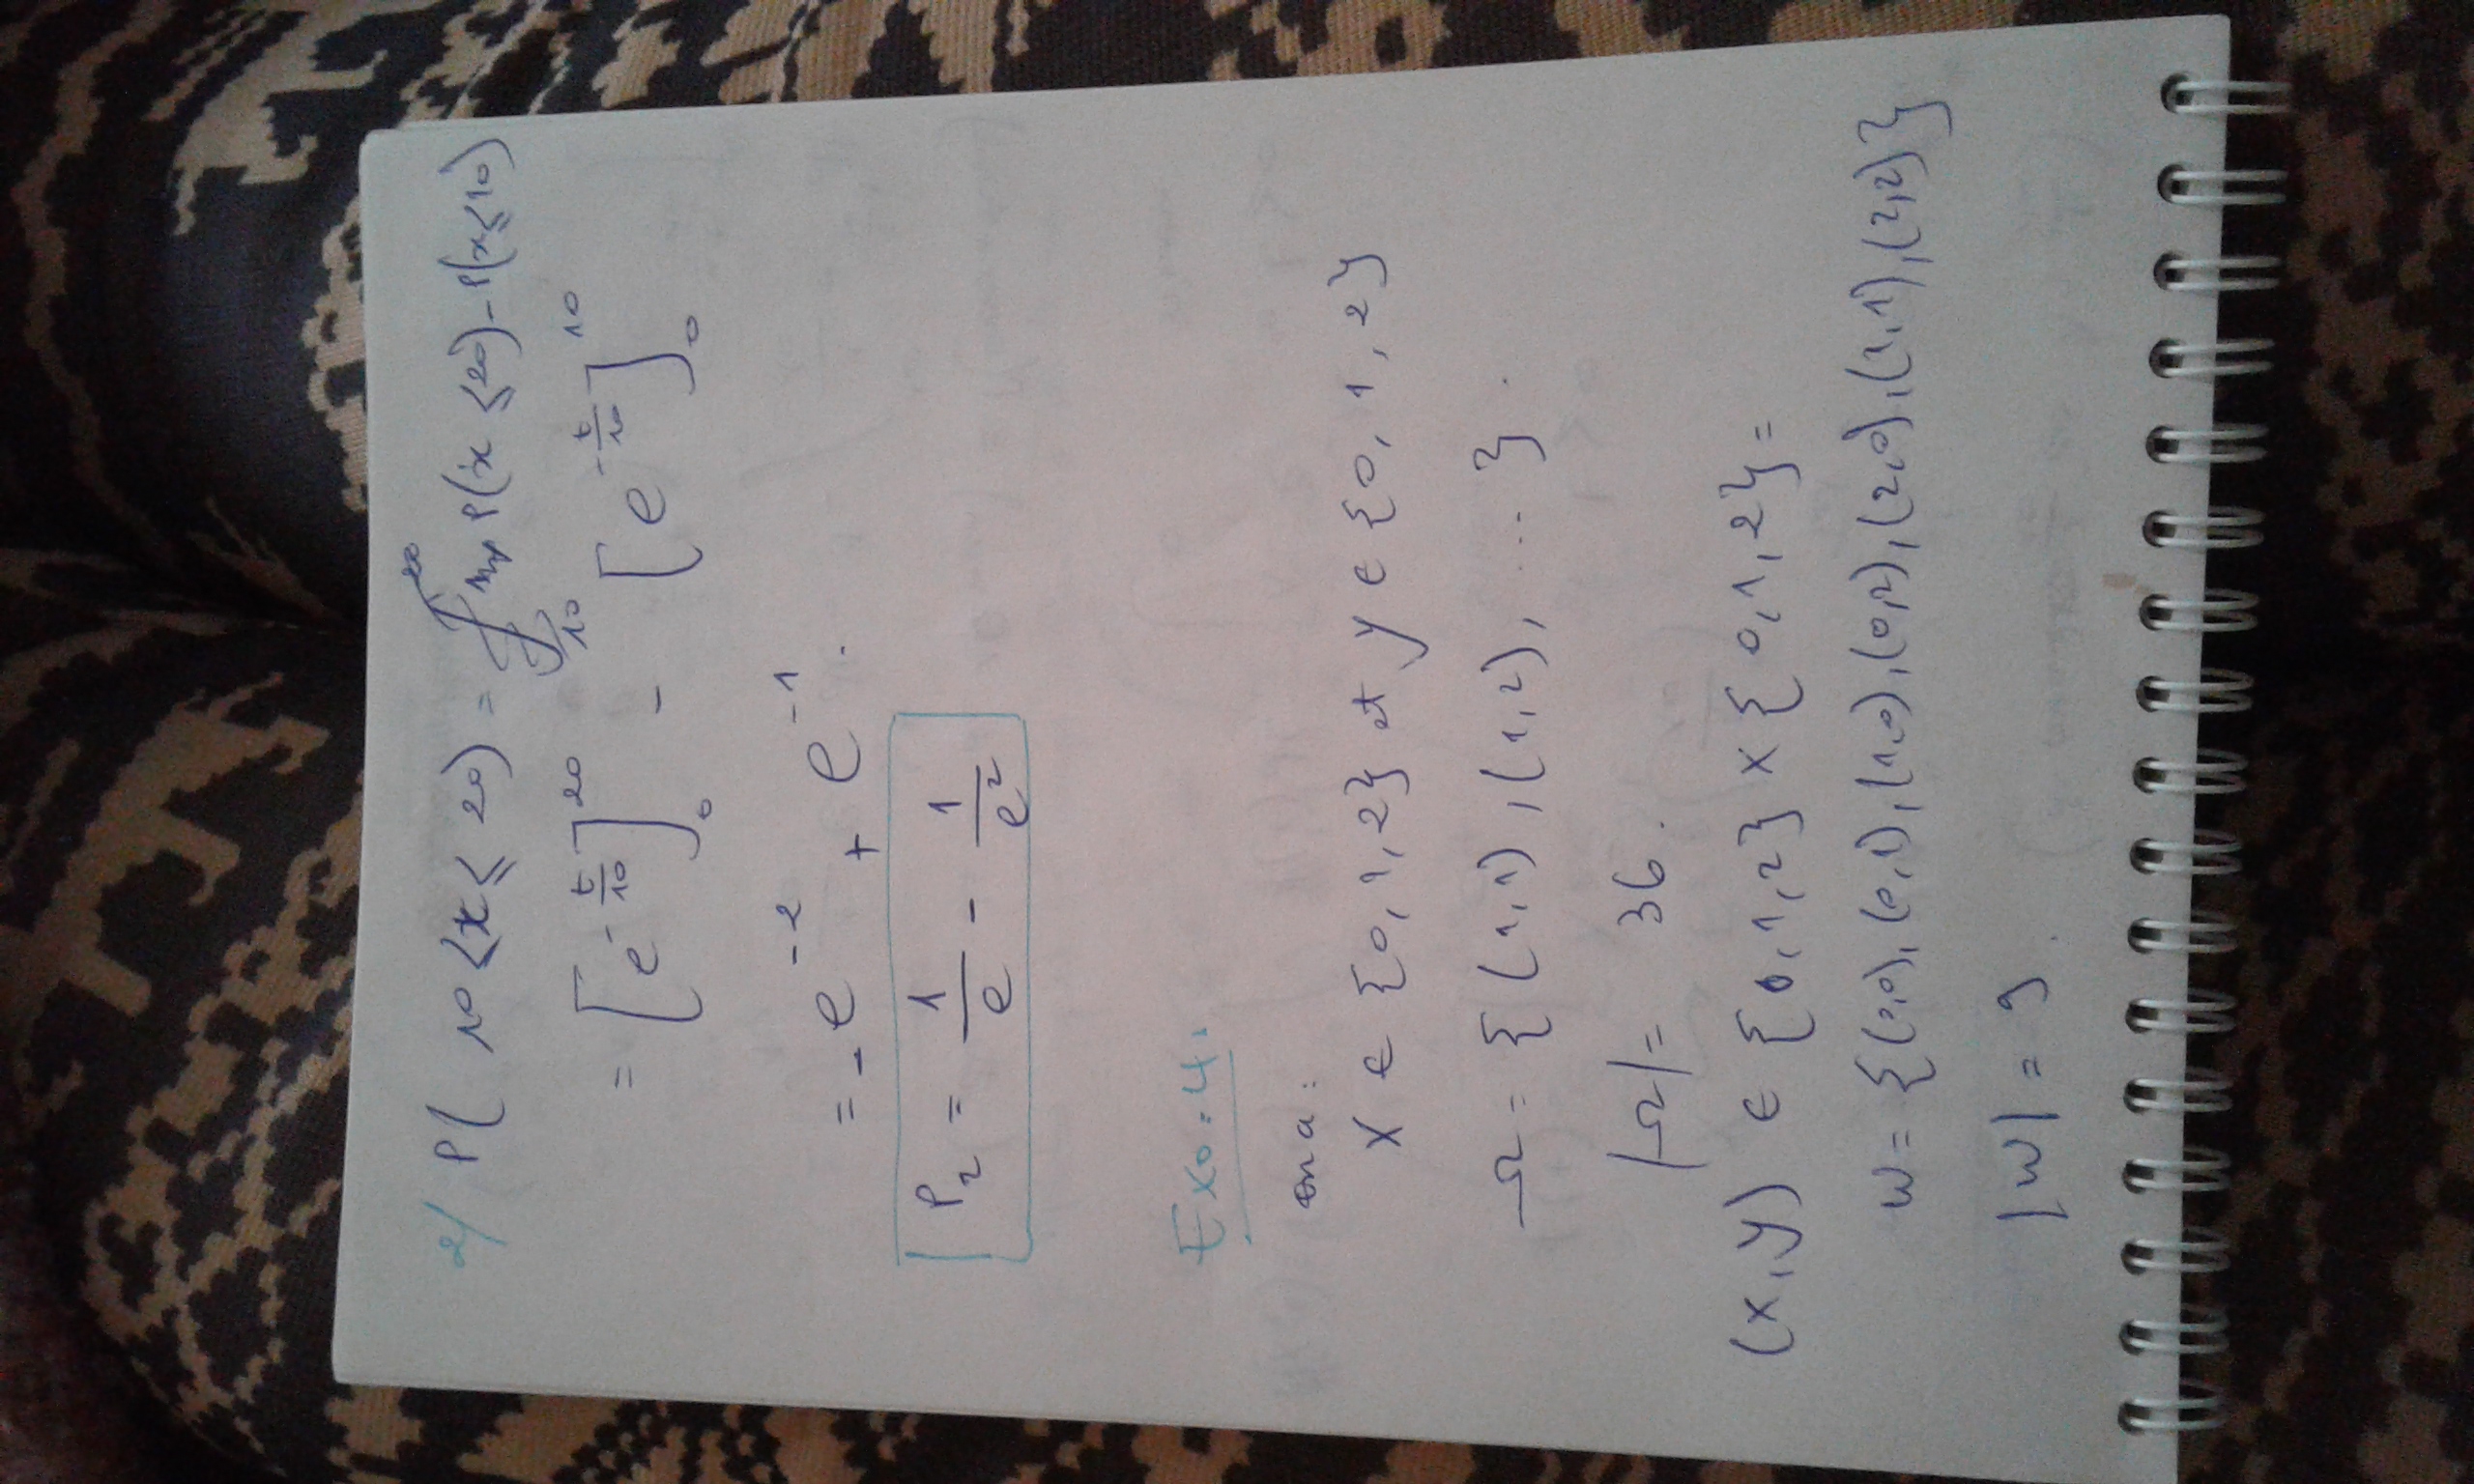 2/ P( 10 ≤ x ≤ 20) = P(x ≤ 20) - P(x ≤ 10)
= [e^{-t/10}]_0^{20} - [e^{-t/10}]_0^{10}
= - e^{-2} + e^{-1}.
P_2 = 1/e - 1/e^2
Exo.4:
on a:
X ∈ {0, 1, 2} et y ∈ {0, 1, 2}
Ω = {(1,1), (1,2), ... }.
|Ω| = 36.
(x, y) ∈ {0, 1, 2} x {0, 1, 2} =
W = {(0,0), (0,1), (1,0), (0,2), (2,0), (1,1), (2,2)}
|W| = 9.